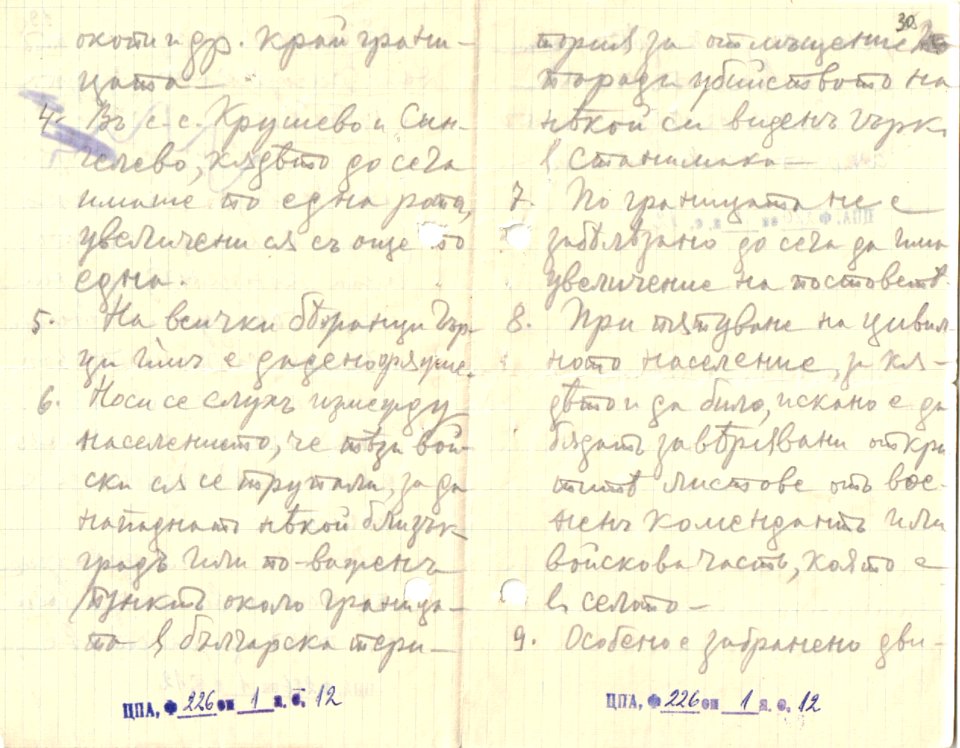 окопи и др. край грани-
цата —
4. Въ с. с. Крушево и Сън-
гелево, кѫдѣто до сега
имаше по една рота,
увеличени сѫ съ още по
една.
5. На всички бѣжанци Гър-
ци имъ е дадено орѫжие.
6. Носи се слухъ измежду
населението, че тѣзи вой-
ски сѫ се трупали, за да
нападнатъ нѣкой близък
градъ или по-важенъ
пунктъ около граница-
та в българска тери-
ЦПА, Ф 226 оп 1 а. е. 12
30.
тория за отмъщение
поради убийството на
нѣкой си виденъ Гърк
в Станимака —
7. По границата не е
забѣлѣзано до сега да има
увеличение на постоветѣ.
8. При пѫтуване на цивил-
ното население, за кѫ-
дѣто и да било, искано е да
бѫдатъ завѣрявани откри
титѣ листове отъ вое-
ненъ комендантъ или
войскова часть, която е
в селото —
9. Особено е забранено дви-
ЦПА, Ф 226 оп 1 а. е. 12